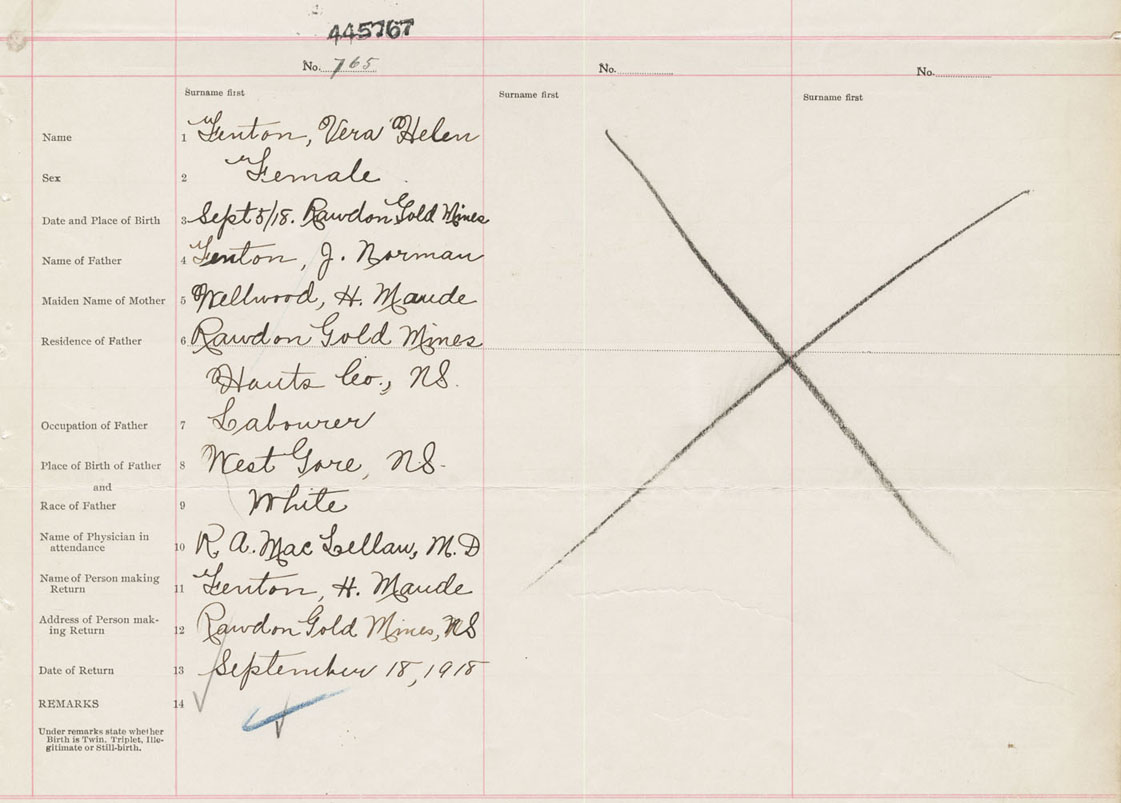 445767
No. 765
No.
No.
Surname first
Surname first
Surname first
Name 1 Fenton, Vera Helen
Sex 2 Female
Date and Place of Birth 3 Sept 5/18. Rawdon Gold Mines
Name of Father 4 Fenton, J. Norman
Maiden Name of Mother 5 Wellwood, H. Maude
Residence of Father 6 Rawdon Gold Mines
Hants Co., NS.
Occupation of Father 7 Labourer
Place of Birth of Father 8 West Gore, NS.
and
Race of Father 9 White
Name of Physician in
attendance 10 R. A. MacLellan, M.D
Name of Person making
Return 11 Fenton, H. Maude
Address of Person mak-
ing Return 12 Rawdon Gold Mines, NS
Date of Return 13 September 18, 1918
REMARKS 14
Under remarks state whether
Birth is Twin, Triplet, Ille-
gitimate or Still-birth.